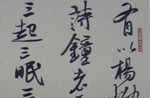 有以楊
詩鐘老
三起三眠三